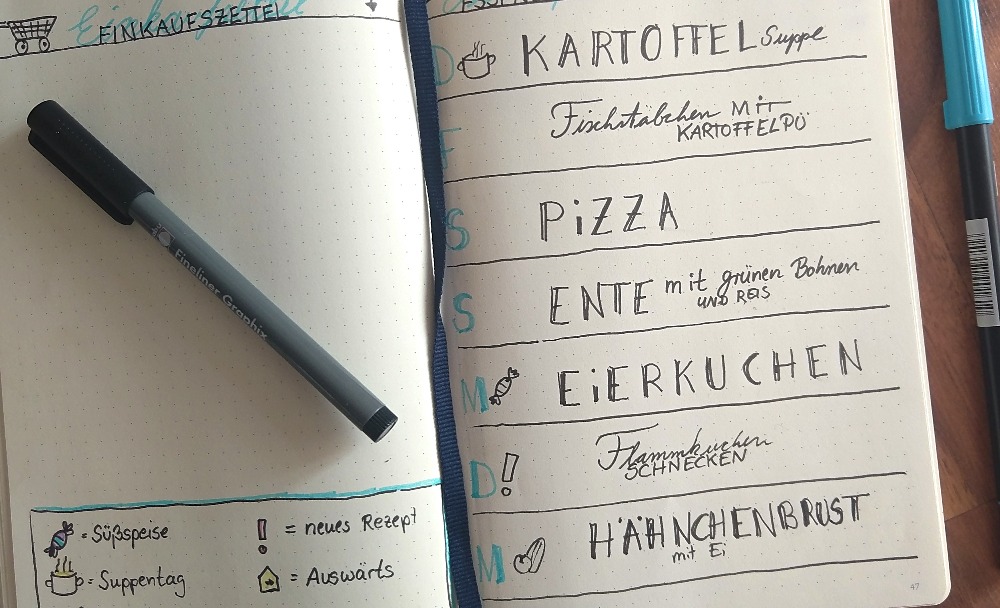 EINKAUFSZETTEL
Fineliner Graphix
= Süßspeise
! = neues Rezept
= Suppentag
= Auswärts
D KARTOFFEL Suppe
F Fischstäbchen MIT
KARTOFFELPÜ
S PiZZA
S ENTE mit grünen Bohnen
UND REIS
M EiERKUCHEN
D! Flammkuchen
SCHNECKEN
M HÄHNCHENBRUST
mit Ei
47